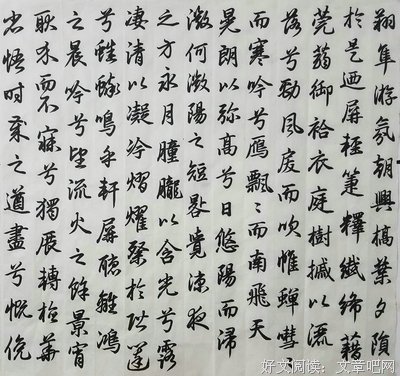 翔隼游氛朝興槁葉夕隕
於是迺屏輕箑釋纖絺藉
莞蒻御袷衣庭樹摵以灑
落兮勁風戾而吹帷蟬嘒々
而寒吟兮鴈飄々而南飛天
晃朗以弥高兮日悠陽而浸
微何微陽之短晷覺涼夜
之方永月朣朧以含光兮露
凄清以凝冷熠燿粲於階闥
兮蟋蟀鳴乎軒屏聽離鴻
之晨吟兮望流火之餘景宵
耿介而不寐兮獨展轉於華
省悟時歲之遒盡兮慨俛
好文阅读：文章吧网